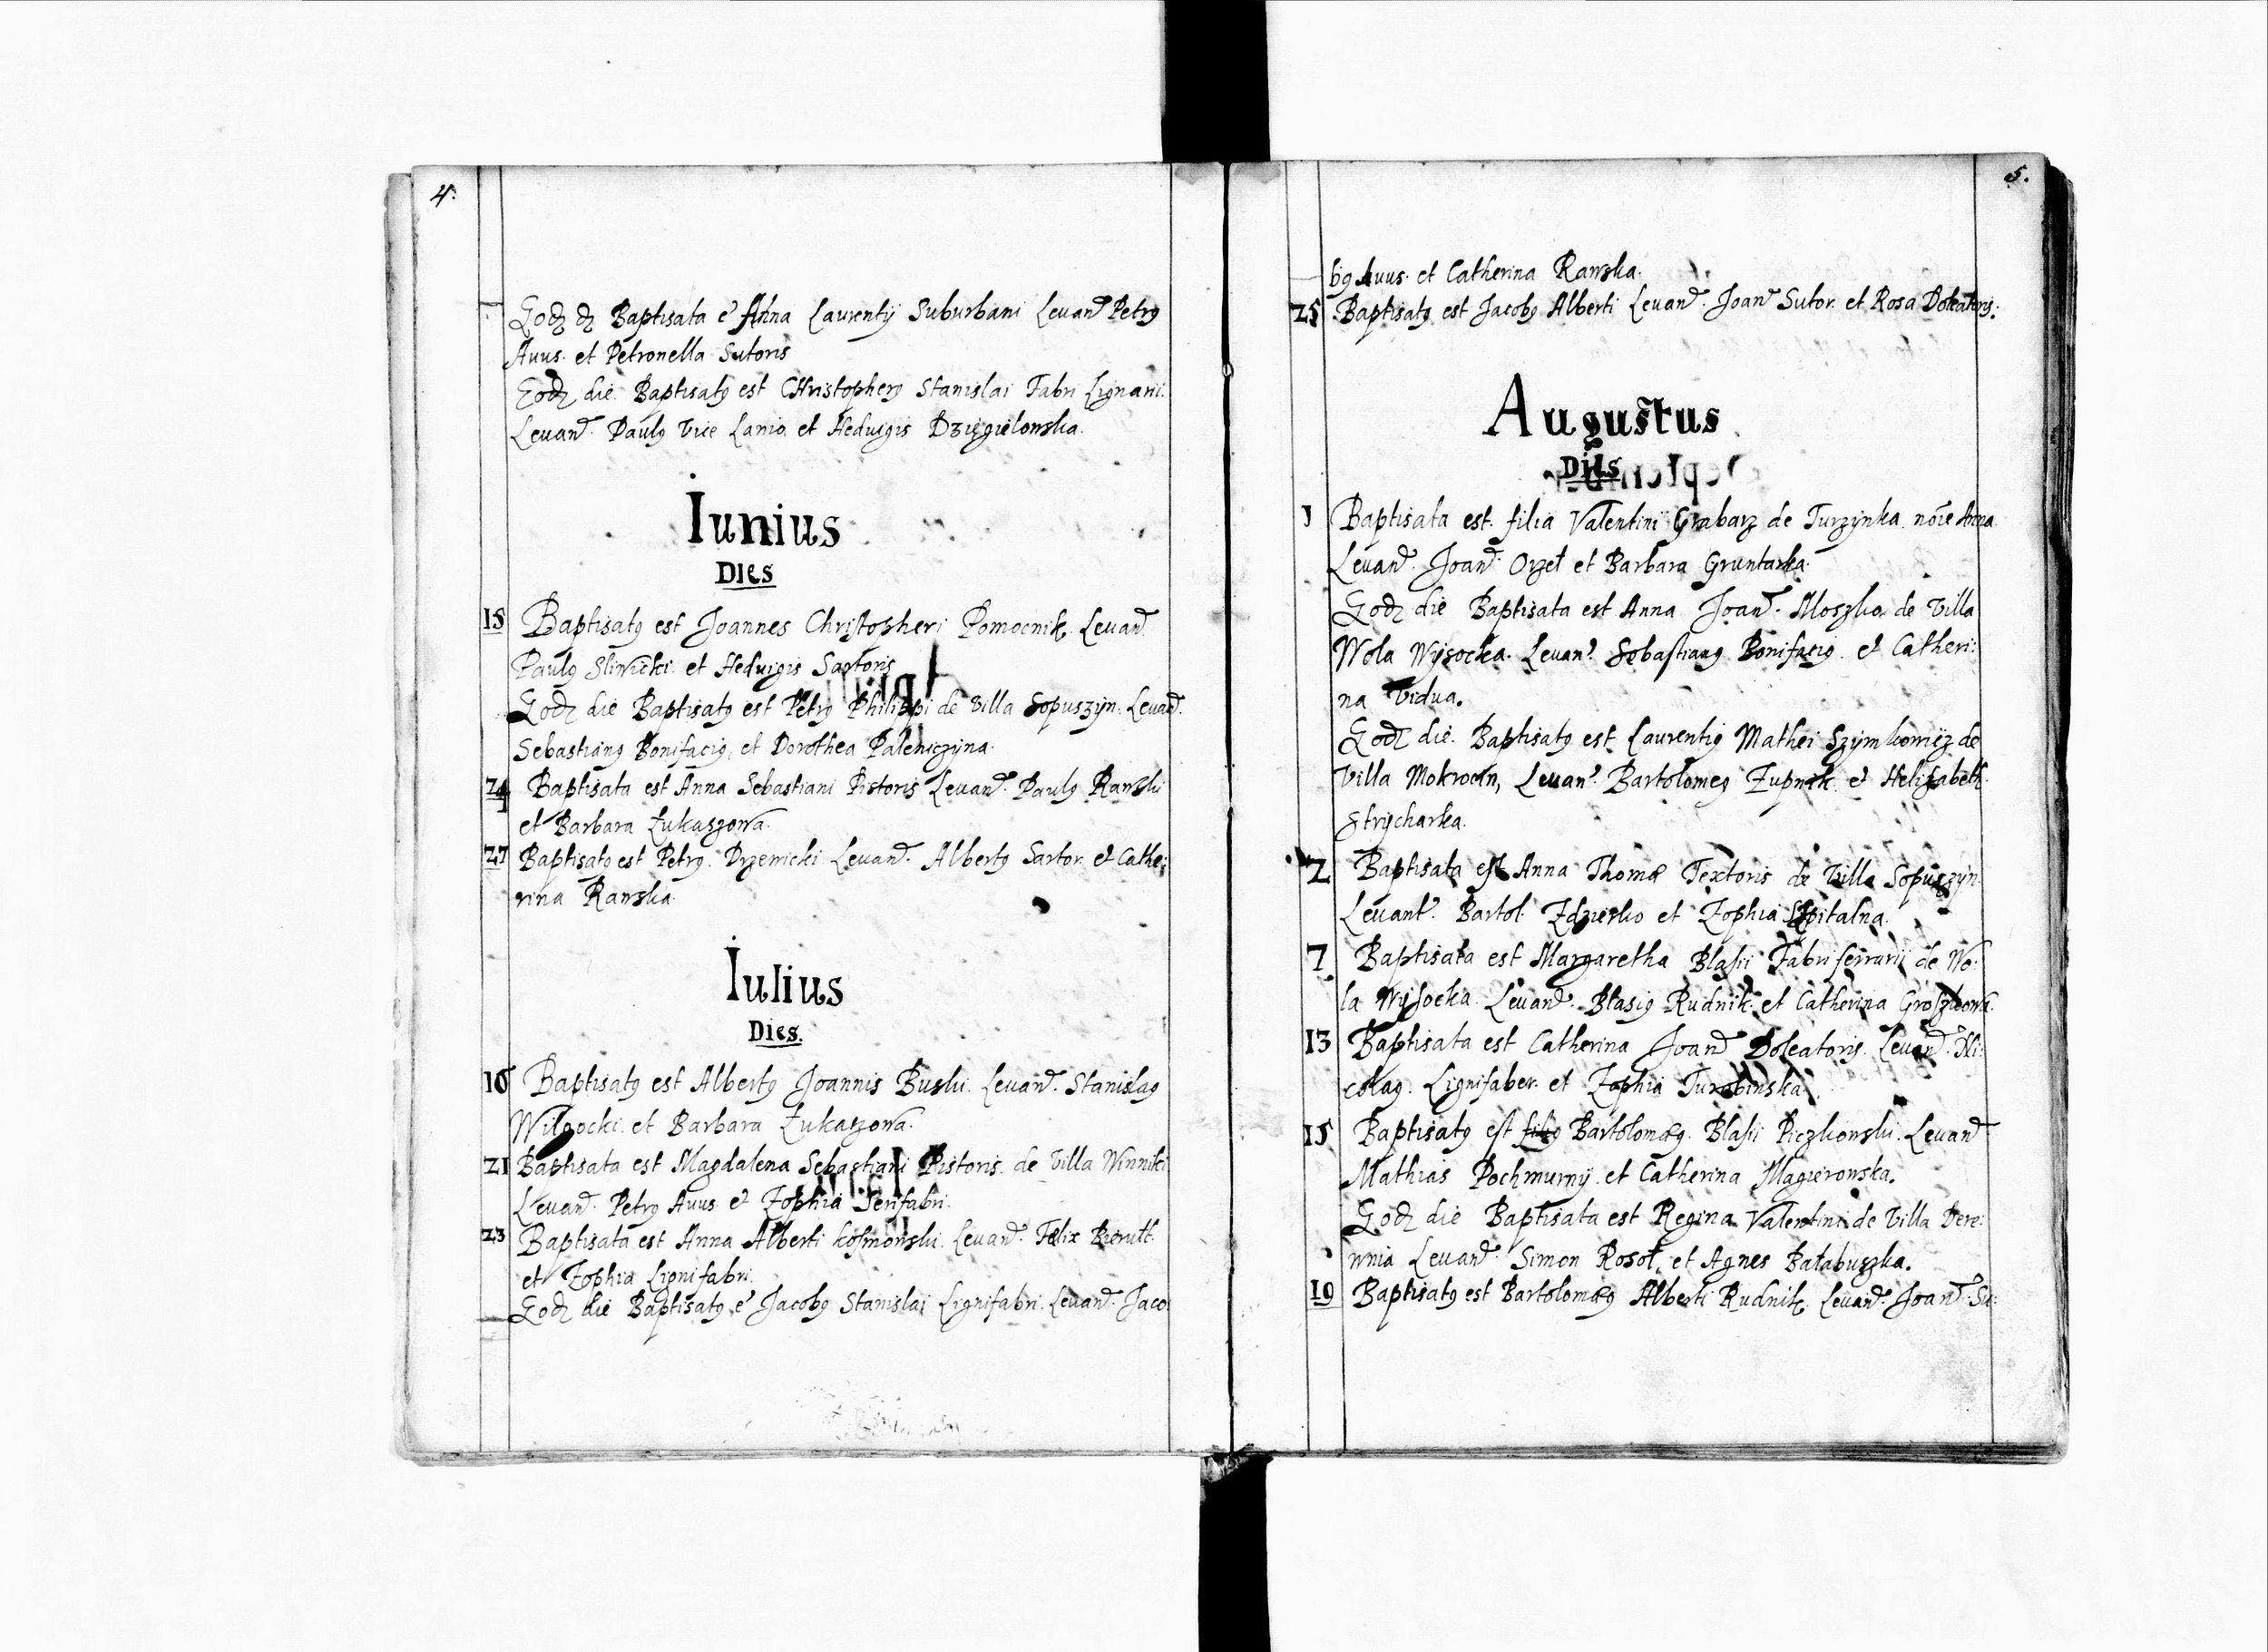 4.
Eodē d̄ Baptisata ē Anna Laurentÿ Suburbani Levanᵗ Petrꝰ
Auus. et Petronella Sutoris
Eodē die. Baptisatꝰ est CHristopherꝰ Stanislai Fabri Lignarii.
Levanᵗ. Paulꝰ Vice Lanio. et Hedvigis Dzięgielowska.
Iunius
Dies
15 Baptisatꝰ est Joannes Christopheri Pomocnik. Levanᵗ
Paulꝰ Sliwicki. et Hedvigis Sartoris
Eodē die Baptisatꝰ est Petrꝰ Philippi de Villa Sopuszÿn. Levanᵗ.
Sebastianꝰ Bonifaciꝰ, et Dorothea Paleniczÿna.
24 Baptisata est Anna Sebastiani Pistoris Levanᵗ. Paulꝰ Rawski
et Barbara Łukaszowa.
27 Baptisatꝰ est Petrꝰ. Drzewicki Levanᵗ. Albertꝰ Sartor. et Cathe:
rina Rawska.
Iulius
Dies.
16 Baptisatꝰ est Albertꝰ Joannis Buski. Levanᵗ. Stanislaꝰ
Wilgocki. et Barbara Łukaszowa.
21 Baptisata est Magdalena Sebastiani Pistoris. de Villa Winniki
Levanᵗ. Petrꝰ Auus. et Zophia Serifabri.
23 Baptisata est Anna Alberti Kosmowski. Levanᵗ. Felix Bierutt.
et Zophia Lignifabri.
Eodē die Baptisatꝰ ē Jacobꝰ Stanislai Lignifabri. Levanᵗ. Jaco
5.
bꝰ Auus. et Catherina Rawska.
25 Baptisatꝰ est Jacobꝰ Alberti Levanᵗ. Joanᵉˢ Sutor. et Rosa Doleatoris.
Augustus
Dies
1 Baptisata est. filia Valentini Grabarz de Turzÿnka. nōīe Anna
Levanᵗ. Joanᵉˢ. Orzeł et Barbara Gruntarka.
Eodē die Baptisata est Anna Joanⁱˢ. Moszko. de Villa
Wola Wÿsocka. Levanᵗ. Sebastianꝰ Bonifaciꝰ. et Catheri:
na Vidua.
Eodē die. Baptisatꝰ est Laurentiꝰ Mathei Szÿmkowicz de
Villa Mokrocin, Levanᵗ. Bartolomeꝰ Zupnik. et Helizabeth.
Strÿcharka.
2 Baptisata est Anna Thomæ Textoris de Villa Sopuszÿn.
Levanᵗ. Bartol. Zdzierko et Zophia Szpitalna.
7 Baptisata est Margaretha Blasii Fabri ferrarii de Wo:
la Wÿsocka. Levanᵗ. Błasiꝰ Rudnik. et Catherina Groszkowa.
13 Baptisata est Catherina Joanⁱˢ Doleatoris. Levanᵗ. Ni:
colaꝰ. Lignifaber. et Zophia Turobinska.
15 Baptisatꝰ est filiꝰ Bartolomæꝰ. Blasii Piczkowski. Levanᵗ
Mathias Pochmurnÿ et Catherina Magierowska.
Eodē die Baptisata est Regina Valentini de Villa Dere:
wnia Levanᵗ. Simon Rosoł, et Agnes Bałabuszka.
19 Baptisatꝰ est Bartolomæꝰ Alberti Rudnik. Levanᵗ. Joanᵉˢ. Su: